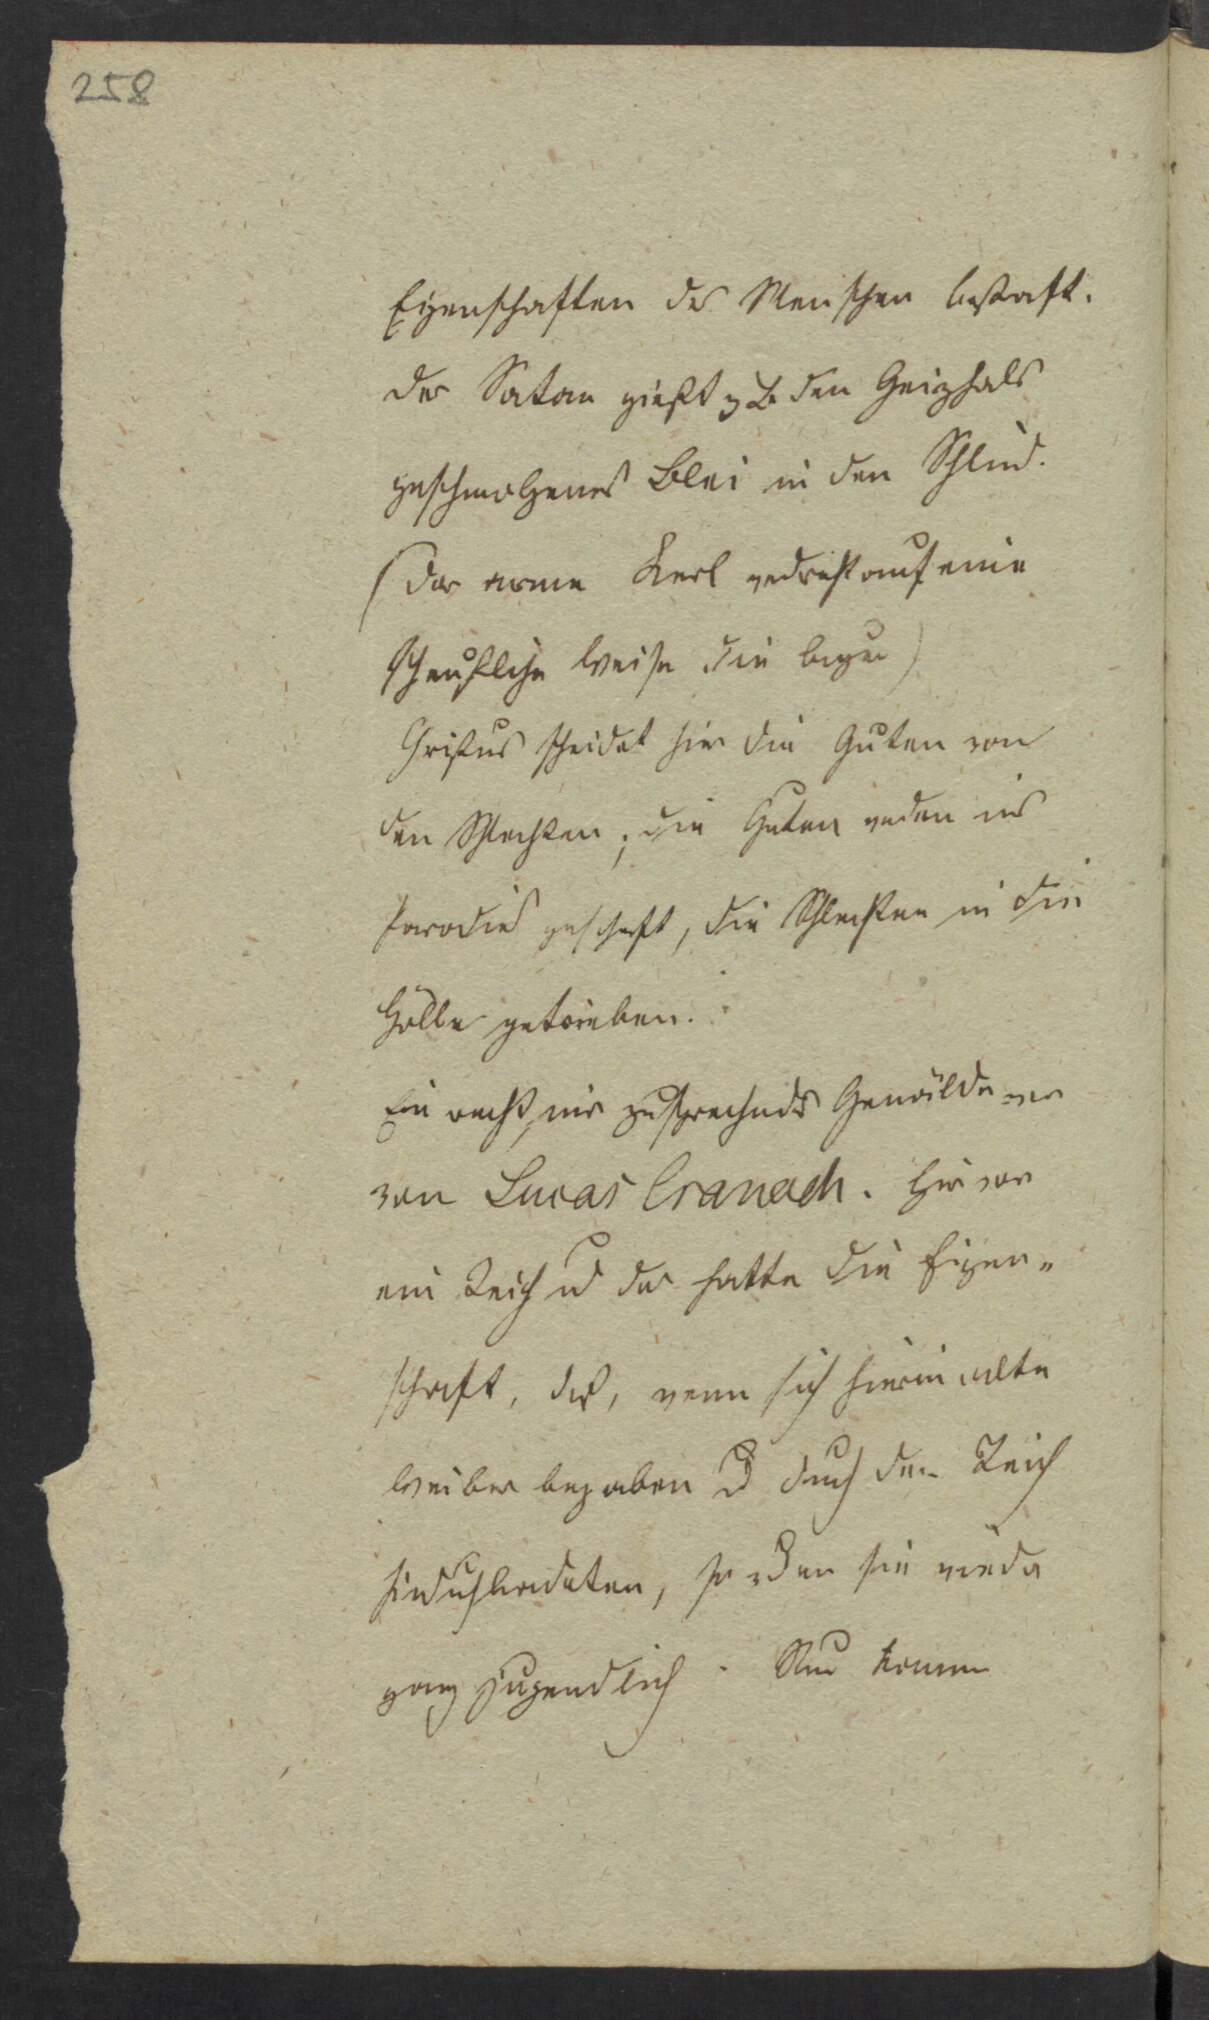 258
Eigenschaften des Menschen bestraft.
der Satan gießt z B den Geizhals
geschmolzenes Blei in den Schlud.
(der arme Kerl verdreht auf eine
scheusliche Weise die Augen)
Christus scheidet hier die Guten von
den Schlechten; die Guten werden ins
Paradies geschaft, die Schlechten in die
Hölle getrieben.
Ein recht mir zusprechends Gemälde war
von Lucas Cranach. Hier war
ein Teich u der hatte die Eigen-
schaft, daß, wenn sich hierin alte
Weiber begaben u durch den Teich
hindurchbadeten, so wurden sie wieder
ganz jugendlich. Nun kommen